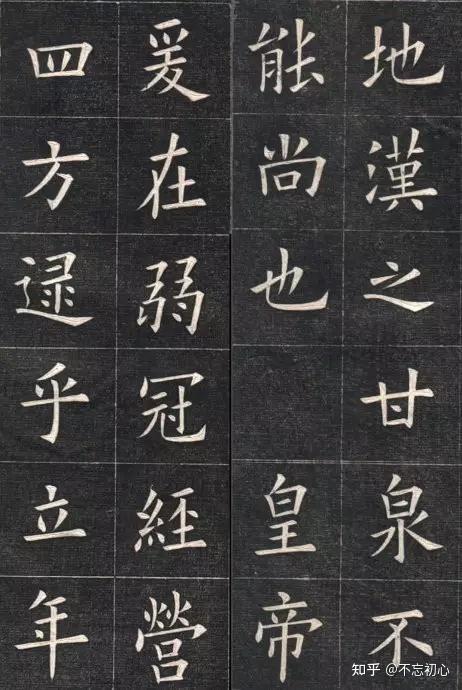 地漢之甘泉不
能尚也 皇帝
爰在弱冠經營
四方逯乎立年
知乎 @不忘初心